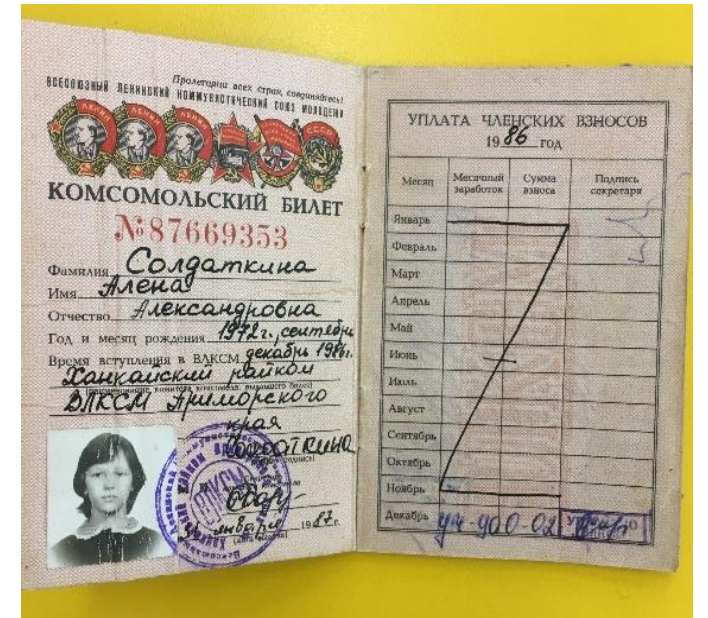 Пролетарии всех стран, соединяйтесь!
ВСЕСОЮЗНЫЙ ЛЕНИНСКИЙ КОММУНИСТИЧЕСКИЙ СОЮЗ МОЛОДЕЖИ
ЛЕНИН ЛЕНИН ЛЕНИН СССР
КОМСОМОЛЬСКИЙ БИЛЕТ
№87669353
Фамилия Солдаткина
Имя Алена
Отчество Александровна
Год и месяц рождения 1972г., сентябрь
Время вступления в ВЛКСМ декабрь 1986г.
Ханкайский райком
ВЛКСМ Приморского
края
Солдаткина
января 1987г.
УПЛАТА ЧЛЕНСКИХ ВЗНОСОВ
1986 год
Месяц Месячный заработок Сумма взноса Подпись секретаря
Январь
Февраль
Март
Апрель
Май
Июнь
Июль
Август
Сентябрь
Октябрь
Ноябрь
Декабрь уч-ся 0-02